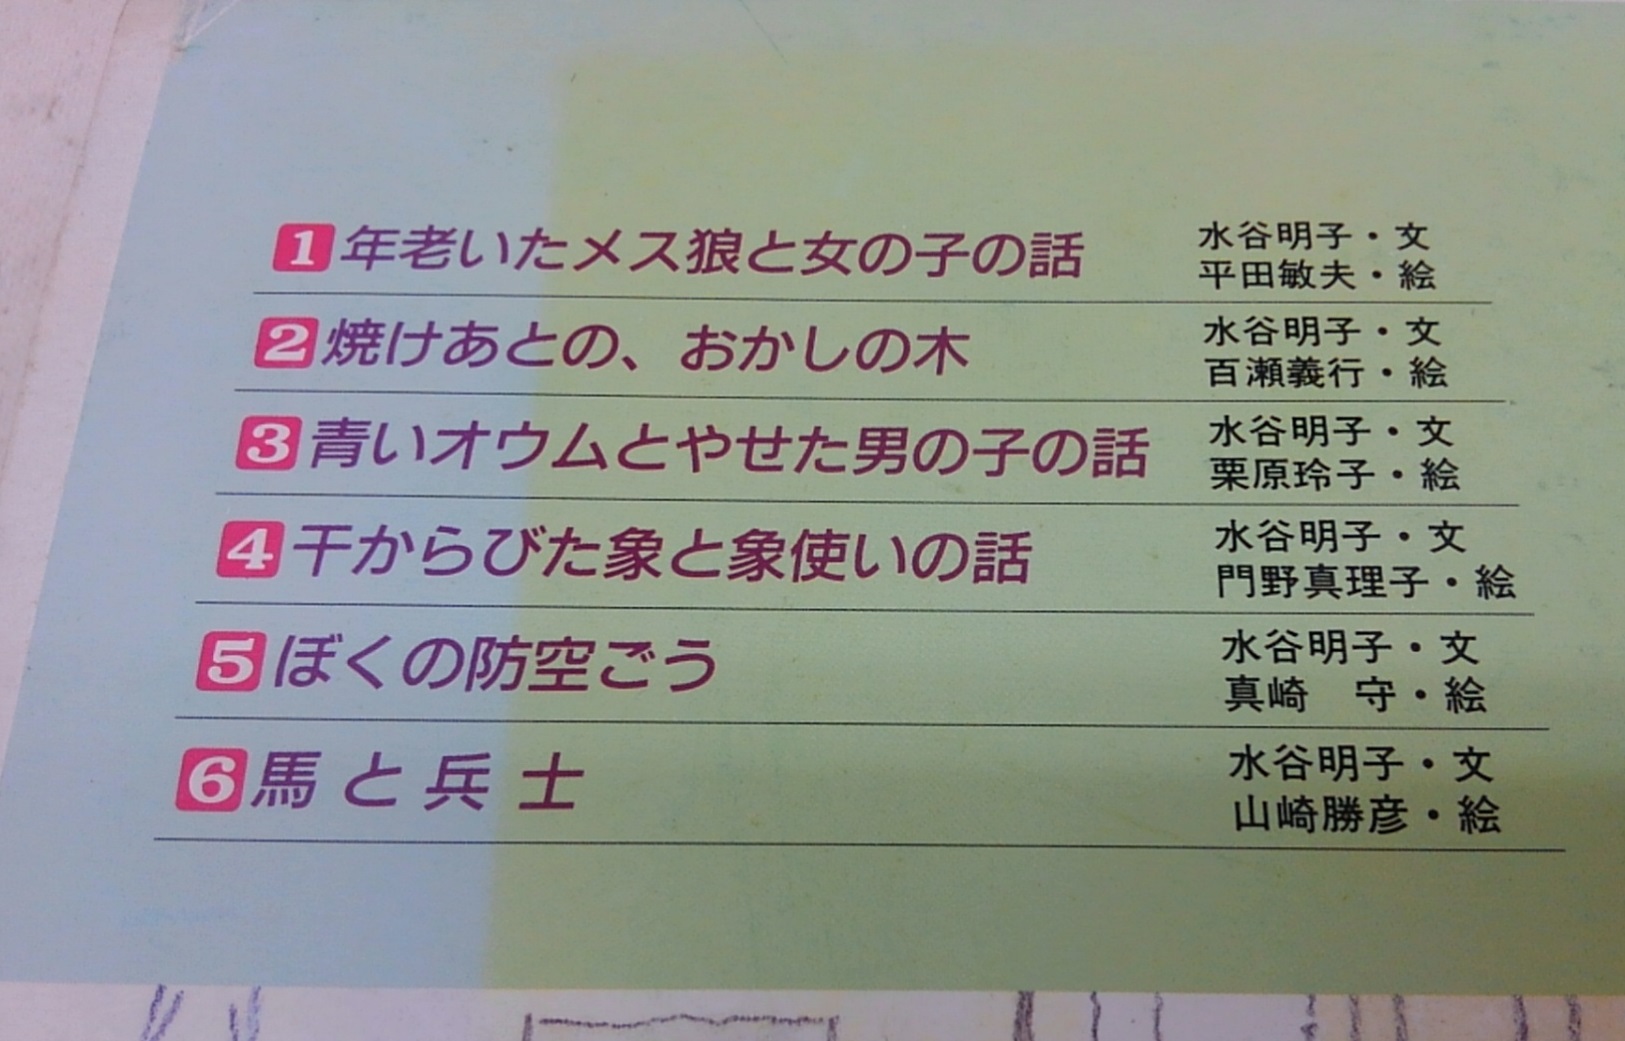 1 年老いたメス狼と女の子の話 水谷明子・文
平田敏夫・絵
2 焼けあとの、おかしの木 水谷明子・文
百瀬義行・絵
3 青いオウムとやせた男の子の話 水谷明子・文
栗原玲子・絵
4 干からびた象と象使いの話 水谷明子・文
門野真理子・絵
5 ぼくの防空ごう 水谷明子・文
真崎 守・絵
6 馬と兵士 水谷明子・文
山崎勝彦・絵